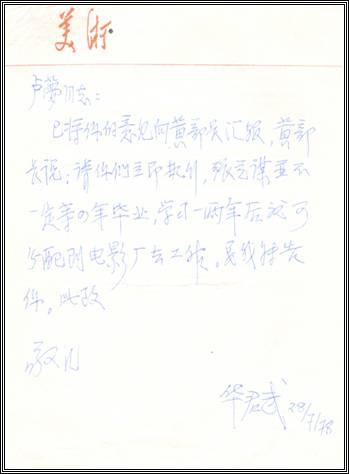 美术
卢梦同志：
已将你的意见向黄部长汇报，黄部
长说：请你们立即执行，张艺谋并不
一定等四年毕业，学习一两年后就可
分配到电影厂去工作。专此特告
你。此致
敬礼
华君武 28/7/78